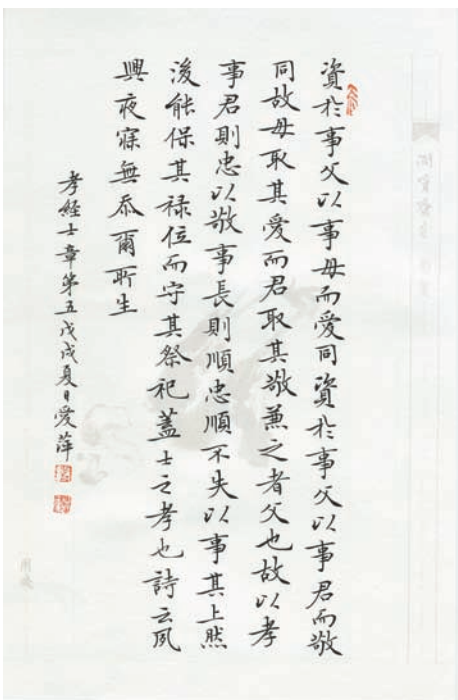 資於事父以事母而愛同資於事父以事君而敬
同故母取其愛而君取其敬兼之者父也故以孝
事君則忠以敬事長則順忠順不失以事其上然
後能保其祿位而守其祭祀蓋士之孝也詩云夙
興夜寐無忝爾所生
孝經士章第五戊戌夏日愛萍